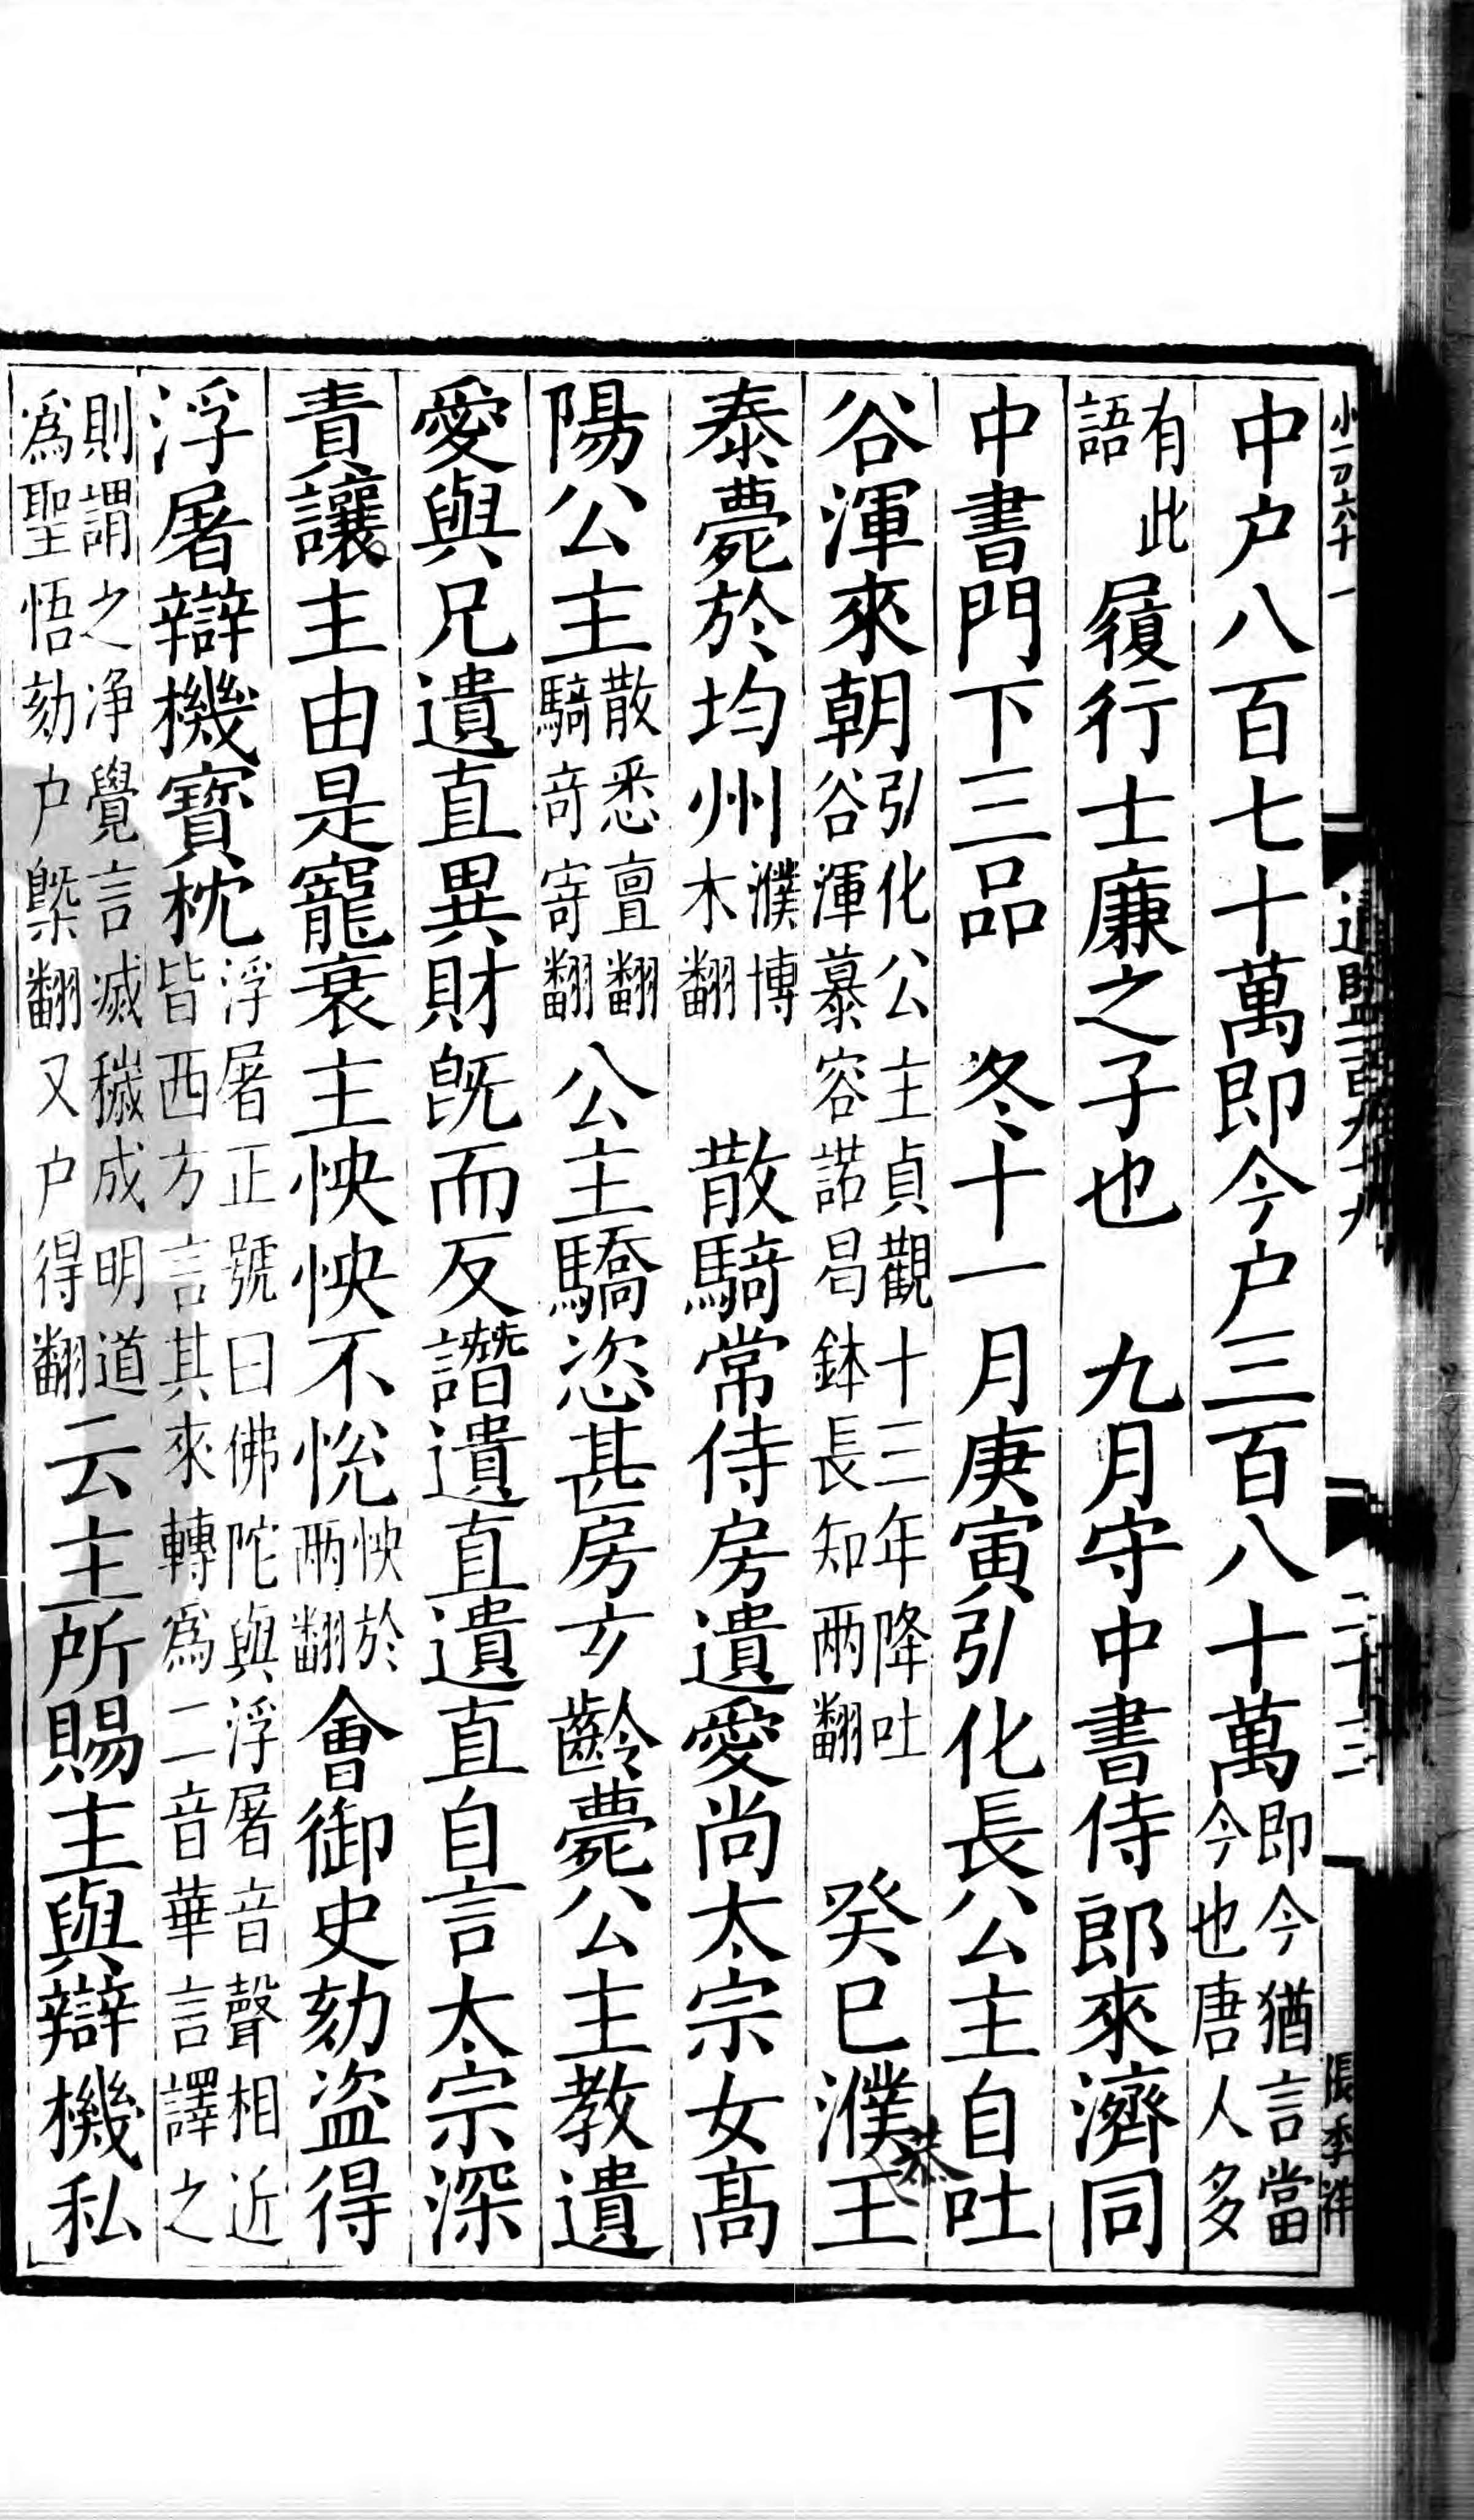 中户八百七十萬即今户三百八十萬即今猶言當今也唐人多
有此語履行士廉之子也　九月守中書侍郎來濟同
中書門下三品　冬十一月庚寅引化長公主自吐
谷渾來朝引化公主貞觀十三年降吐谷渾慕容諾曷鉢長知兩翻　癸巳濮王
恭
泰薨於均州濮博木翻　散騎常侍房遺愛尚太宗女高
陽公主散悉亶翻騎奇寄翻　公主驕恣甚房玄齡薨公主教遺
愛與兄遺直異財旣而反譖遺直遺直自言太宗深
責讓主由是寵衰主怏怏不悅怏於兩翻會御史劾盜得
浮屠辯機寶枕浮屠正號曰佛陀與浮屠音聲相近皆西方言其來轉爲二音華言譯之
則謂之净覺言滅穢成明道爲聖悟劾户槩翻又户得翻云主所賜主與辯機私
二十三
張季祥